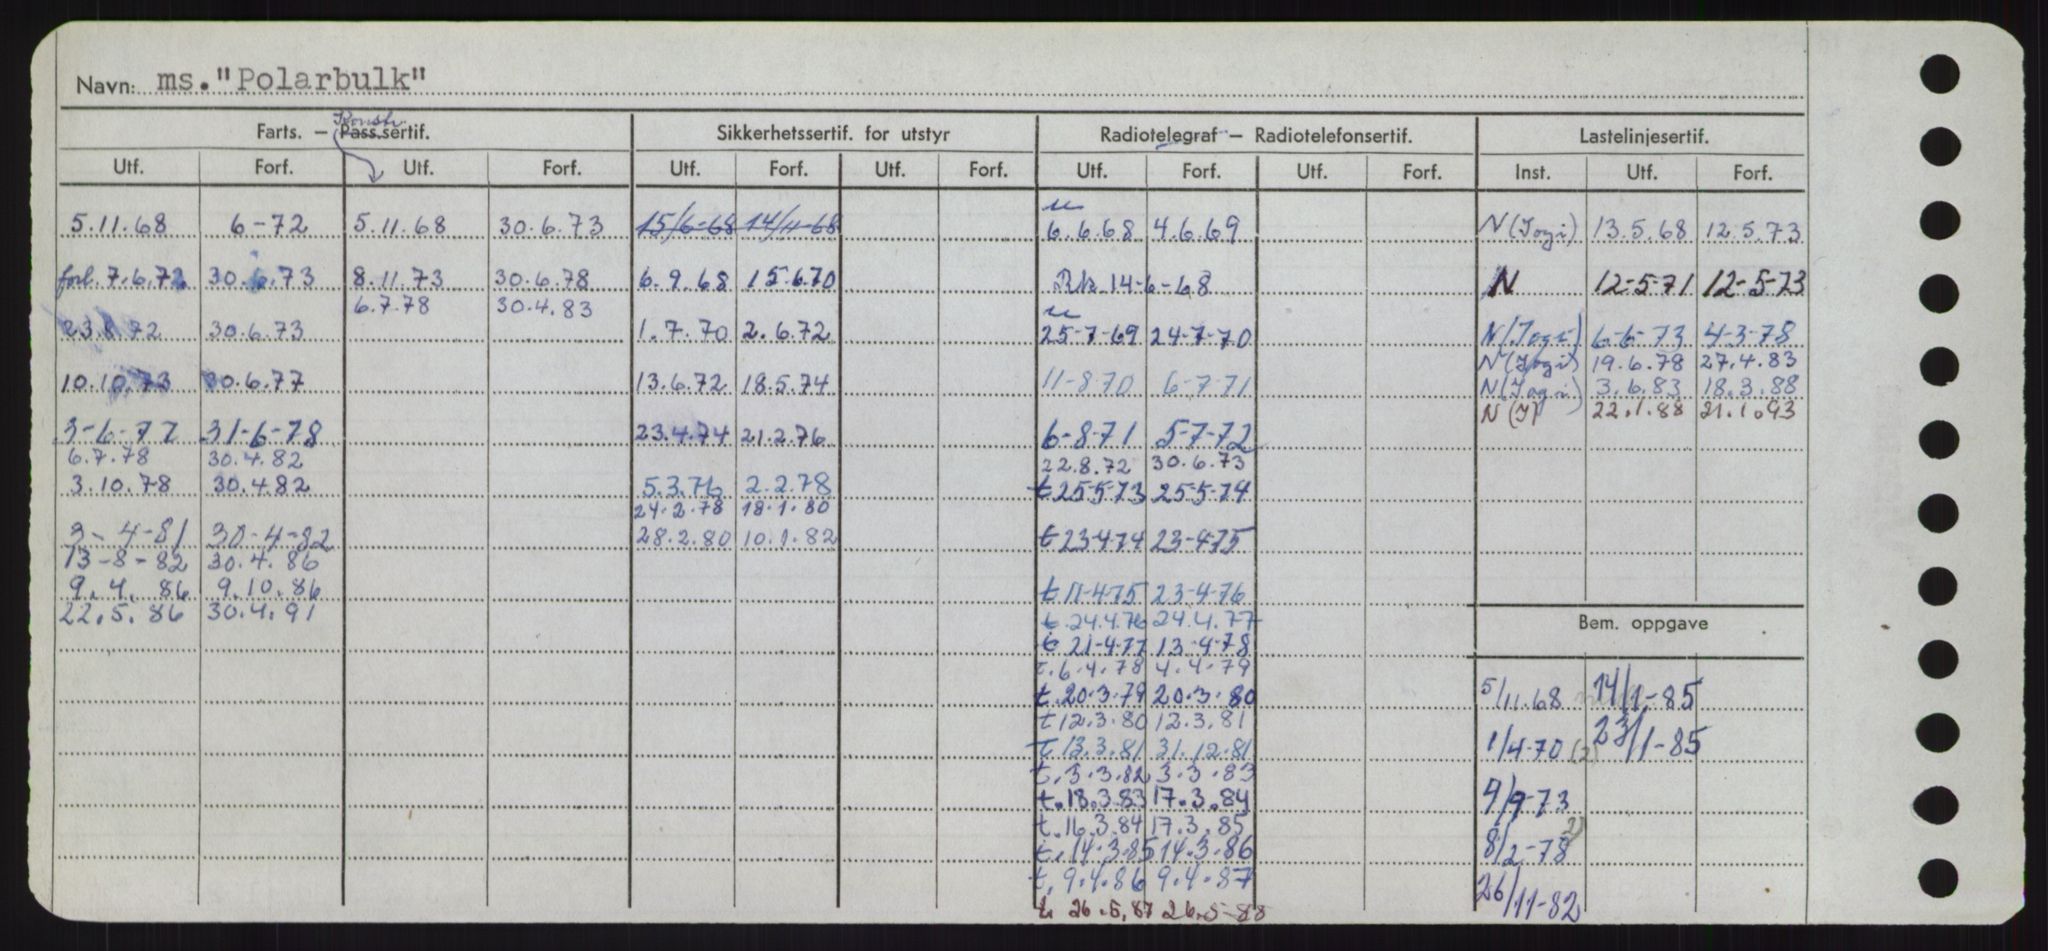 Navn: ms. "Polarbulk"
Konstr.
Farts. – Pass.sertif. Sikkerhetssertif. for utstyr Radiotelegraf – Radiotelefonsertif. Lastelinjesertif.
Utf. Forf. Utf. Forf. Utf. Forf. Utf. Forf. Utf. Forf. Utf. Forf. Inst. Utf. Forf.
5.11.68 6-72 5.11.68 30.6.73 15/6-68 14/11-68 6.6.68 4.6.69 N (Jogi) 13.5.68 12.5.73
forl. 7.6.72 30.6.73 8.11.73 30.6.78 6.9.68 15.6.70 14-6-68 N 12-5-71 12-5-73
6.7.78 30.4.83
23.8.72 30.6.73 1.7.70 2.6.72 25-7-69 24-7-70 N (Jogi) 6-6-73 4-3-78
N (Jogi) 19.6.78 27.4.83
10.10.73 30.6.77 13.6.72 18.5.74 11-8-70 6-7-71 N (Jogi) 3.6.83 18.3.88
N (J) 22.1.88 21.1.93
3-6-77 31-6-78 23.4.74 21.2.76 6-8-71 5-7-72
6.7.78 30.4.82 22.8.72 30.6.73
3.10.78 30.4.82 5.3.76 2.2.78 t 25-5-73 25-5-74
24.2.78 18.1.80
3-4-81 30-4-82 28.2.80 10.1.82 t 23-4-74 23-4-75
13-8-82 30.4.86
9.4.86 9.10.86 t 11-4-75 23-4-76
22.5.86 30.4.91 t. 24.4.76 24.4.77
Bem. oppgave
t 21-4-77 13-4-78
t. 6.4.78 4.4.79
t. 20.3.79 20.3.80 5/11.68 14/1-85
t 12.3.80 12.3.81
t. 13.3.81 31.12.81 1/4-70 (2) 23/1-85
t. 3.3.82 3.3.83
t. 18.3.83 17.3.84 4/9-73
t. 16.3.84 17.3.85
t. 14.3.85 14.3.86 8/2-78 2)
t. 9.4.86 9.4.87
t. 26.5.87 26.5-88 26/11-82